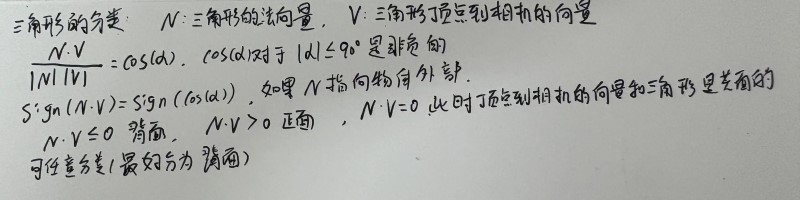 三角形的分类 N:三角形的法向量, V:三角形顶点到相机的向量
N·V / |N||V| = cos(α). cos(α)对于 |α|≤90° 是非负的
Sign(N·V)=Sign(cos(α)), 如果 N 指向物体外部.
N·V≤0 背面, N·V>0 正面, N·V=0 此时顶点到相机的向量和三角形是共面的
可任意分类(最好分为背面)